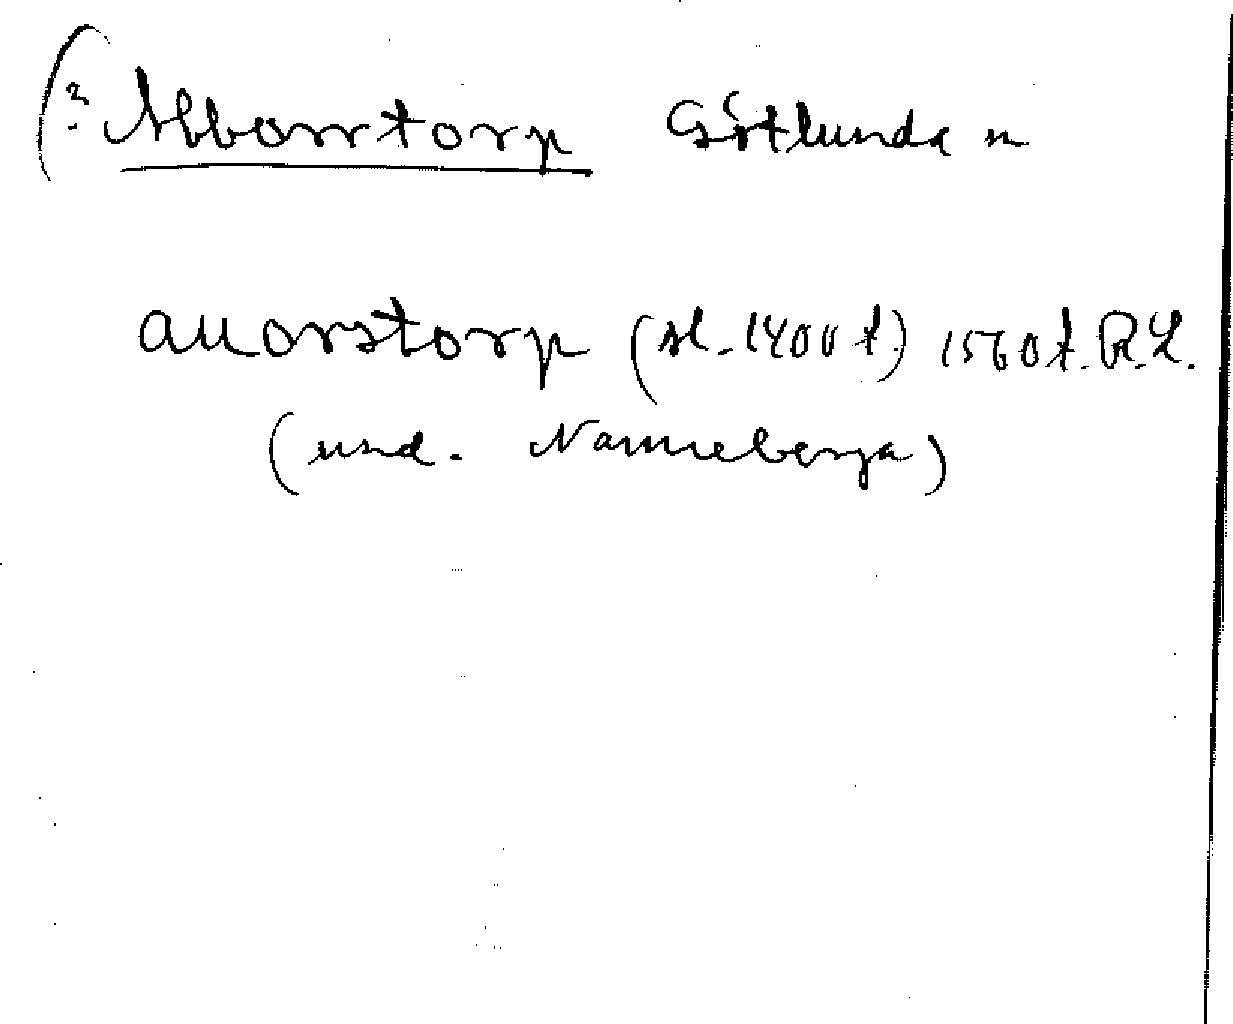 (? Abborrtorp Götlunda sn
auorstorp (sl. 1400 t) 1560 t. R.L.
(und. Nanneberga)